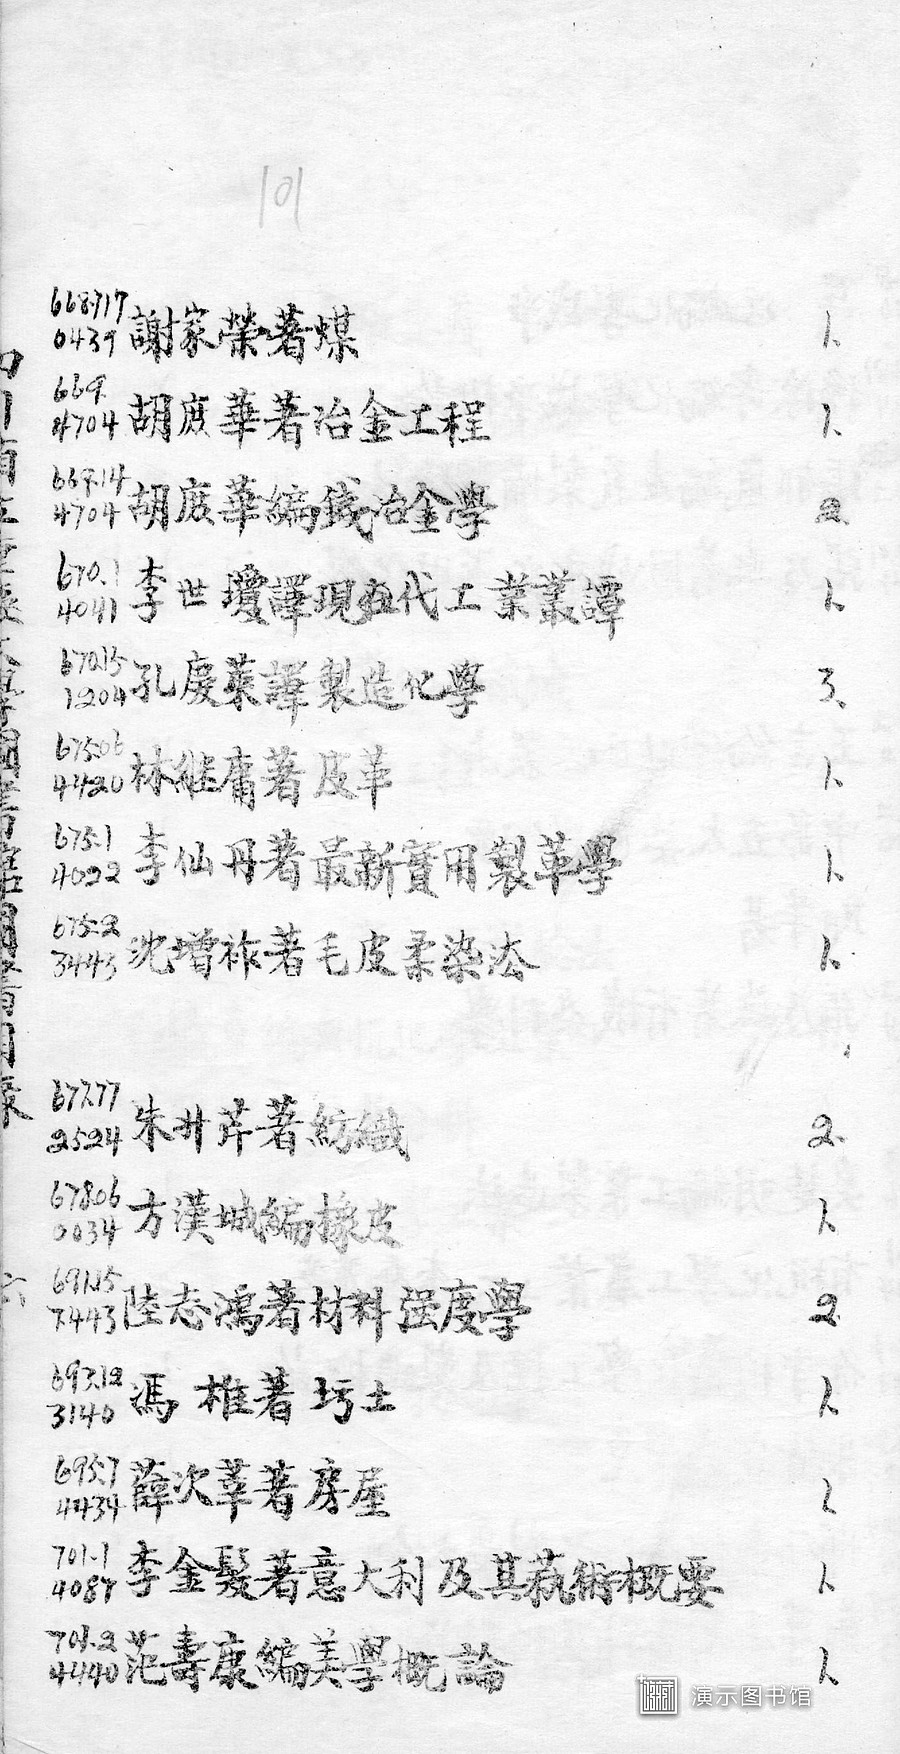 101
668.717
0439 謝家榮著煤 1.
669.
4704 胡庶華著冶金工程 1.
669.14
4704 胡庶華編鐵冶金學 2.
670.1
4041 李世瓊譯現在代工業叢譚 1.
670.15
1204 孔慶萊譯製造化學 3.
675.06
4420 林繼庸著皮革 1.
675.1
4022 李仙丹著最新實用製革學 1.
675.2
3443 沈增祚著毛皮柔染法 1.
677.77
2524 朱升芹著紡織 2.
678.06
0034 方漢城編橡皮 1.
691.15
7443 陸志鴻著材料强度學 2.
693.12
3140 馮雄著圬土 1.
695.7
4434 薛次莘著房屋 1
701.1
4087 李金髮著意大利及其藝術概要 1.
701.2
4440 范壽康編美學概論 1.
六
演示图书馆